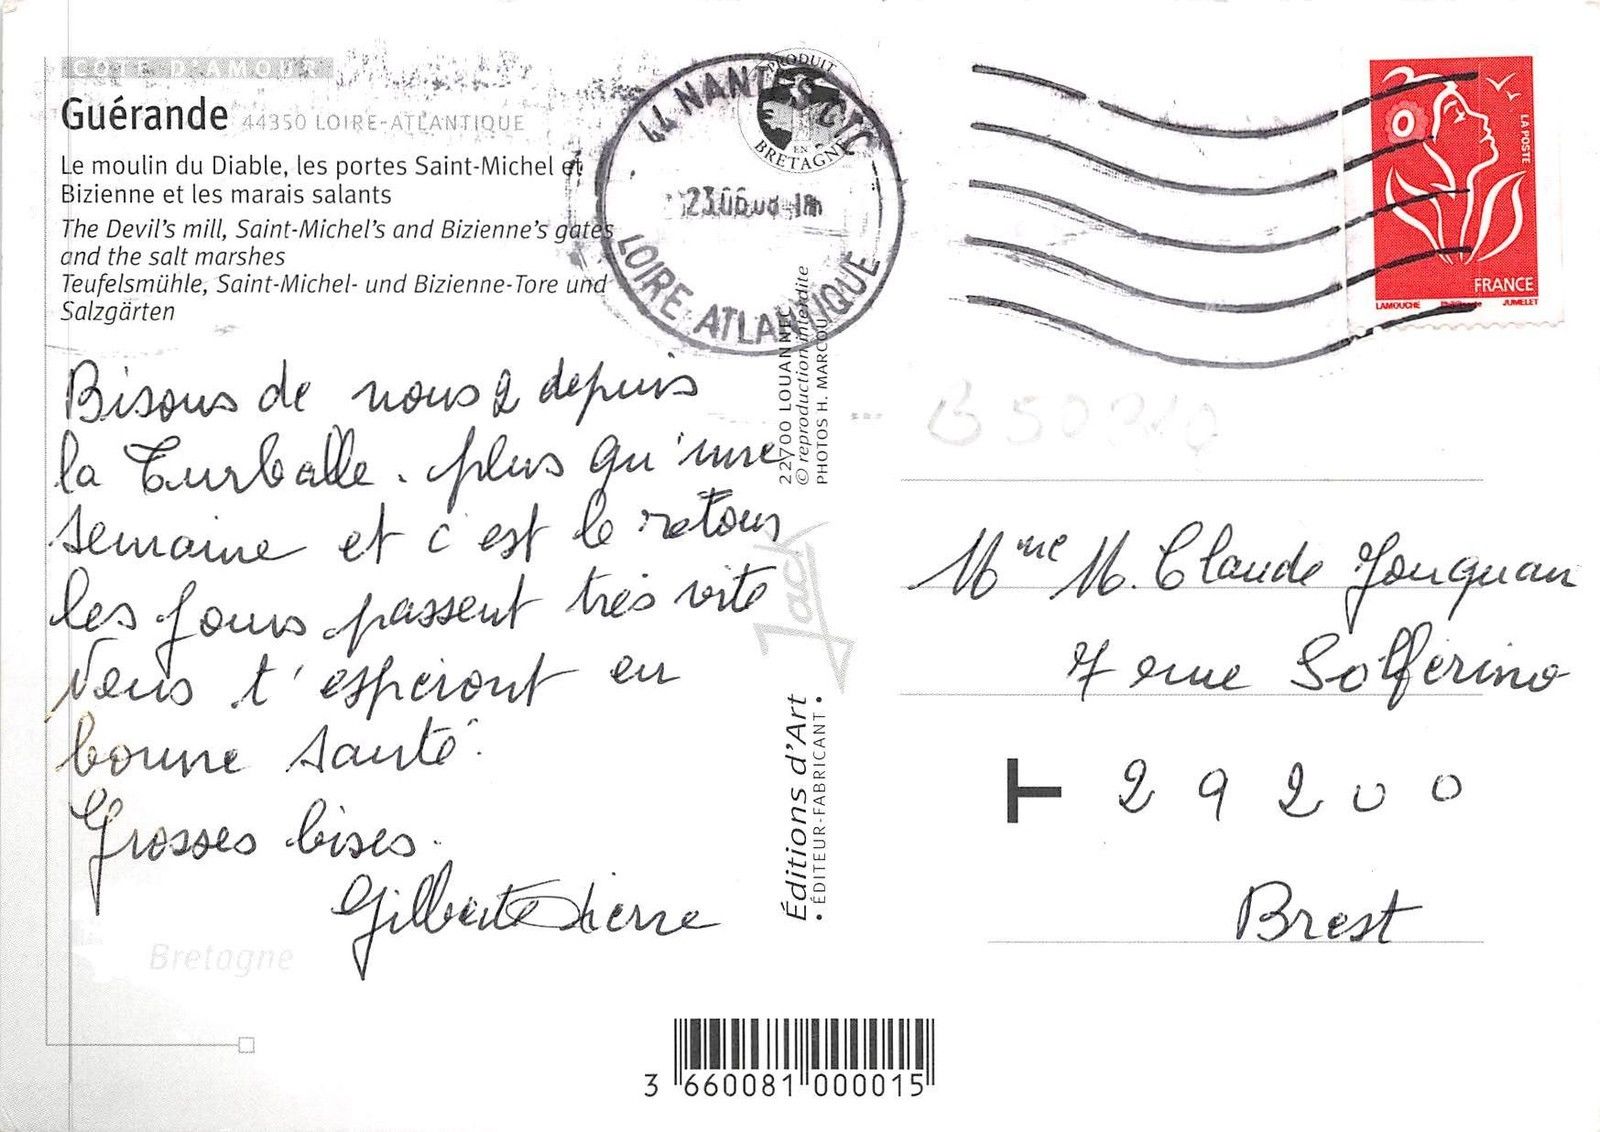 COTE D'AMOUR
Guérande 44350 LOIRE-ATLANTIQUE
Le moulin du Diable, les portes Saint-Michel et
Bizienne et les marais salants
The Devil's mill, Saint-Michel's and Bizienne's gates
and the salt marshes
Teufelsmühle, Saint-Michel- und Bizienne-Tore und
Salzgärten
Bisous de nous 2 depuis
la Turballe. plus qu'une
semaine et c'est le retour
les jours passent très vite
Vous t'espéront en
bonne santé.
Grosses bises.
Gilberte Pierre
Bretagne
44 NANTES CTC
LOIRE ATLANTIQUE
PRODUIT
EN
BRETAGNE
22700 LOUANNEC
© reproduction interdite
PHOTOS H. MARCOU
Jack
Éditions d'Art
• ÉDITEUR-FABRICANT •
LA POSTE
FRANCE
LAMOUCHE JUMELET
Mme M. Claude Jouquan
7 rue Solférino
T 29200
Brest
3 660081 000015